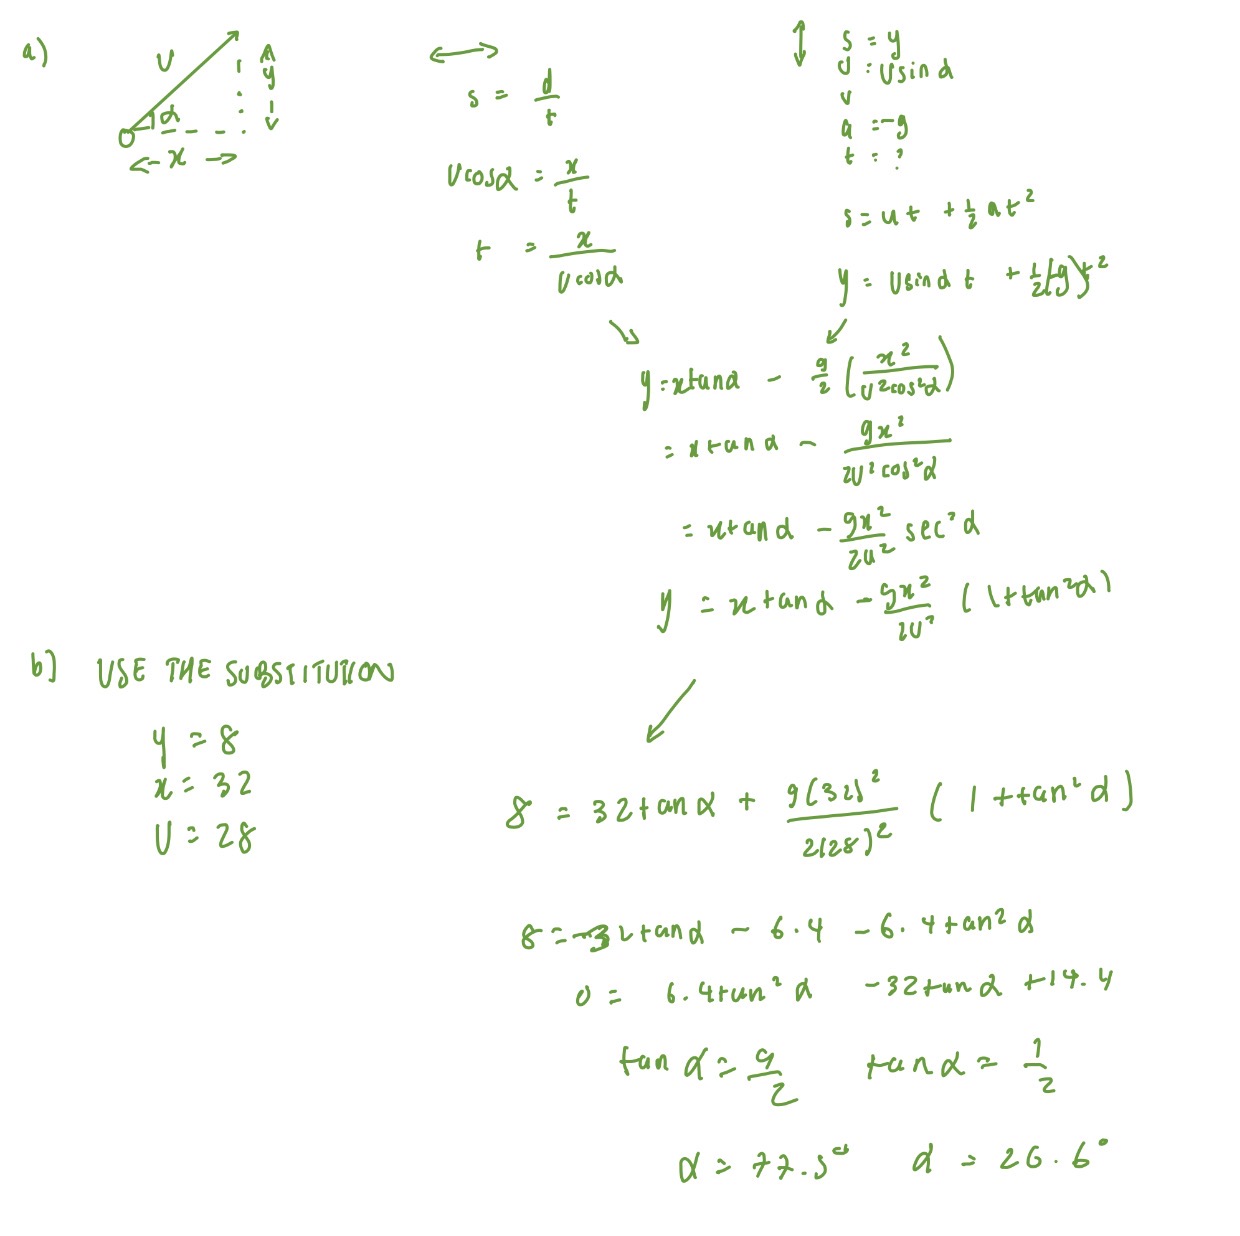 a)
U
α
y
O
x
s = d/t
Ucosα = x/t
t = x/(Ucosα)
s = y
U = Usinα
v
a = -g
t = ?
s = ut + 1/2 at²
y = Usinα t + 1/2(-g)t²
y = xtanα - g/2 (x²/(U²cos²α))
= xtanα - gx²/(2U²cos²α)
= xtanα - gx²/(2U²) sec²α
y = xtanα - gx²/(2U²) (1+tan²α)
b) USE THE SUBSTITUTION
y = 8
x = 32
U = 28
8 = 32tanα + g(32)²/(2(28)²) (1+tan²α)
8 = 32tanα - 6.4 - 6.4tan²α
0 = 6.4tan²α - 32tanα + 14.4
tanα = 9/2 tanα = 1/2
α = 77.5° α = 26.6°